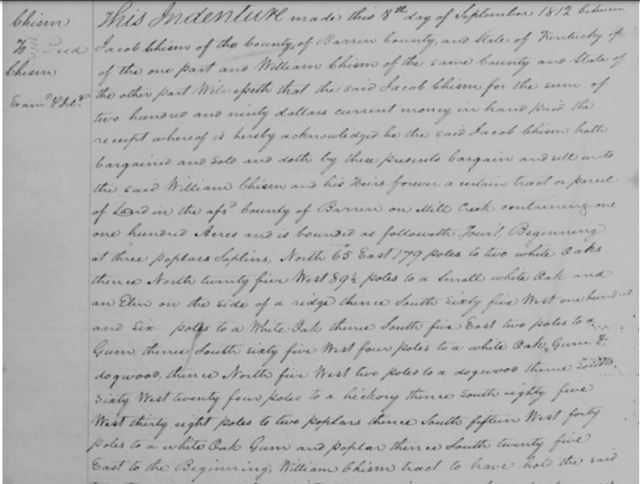 Chism
To Deed
Chism
Exam.d & Del.d
This Indenture made this 8th day of September 1812 between
Jacob Chism of the County of Barren County, and State of Kentucky of
of the one part and William Chism of the same County and State of
the other part Witnesseth that the said Jacob Chism for the sum of
two hundred and ninty dollars current money in hand paid the
receipt whereof is hereby acknowledged he the said Jacob Chism hath
bargained and Sold and doth by these presents bargain and sell unto
the said William Chism and his Heirs forever a certain tract or parcel
of Land in the afsd County of Barren on Mill Creek containing one
one hundred Acres and is bounded as followeth Towit Beginning
at three poplars Saplins, North 65 East 179 poles to two white Oaks
thence North twenty five West 89½ poles to a Small white Oak and
an Elm on the side of a ridge thence South Sixty five West one hundred
and Six poles to a White Oak thence South five East two poles to a
Gum, thence South sixty five West four poles to a white Oak, Gum &
dogwood, thence North five West two poles to a dogwood thence South
Sixty West twenty four poles to a hickory thence South eighty five
West thirty eight poles to two poplars thence South fifteen West forty
poles to a white Oak Gum and poplar thence South twenty five
East to the Beginning William Chism tract to have hold the said